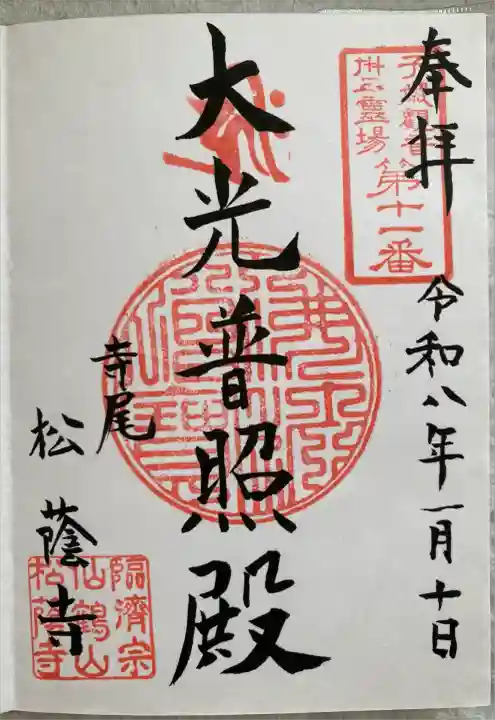 奉拝
子歳観音
霊場
第十一番
令和八年一月十日
大光普照殿
寺尾
松蔭寺
臨済宗
仙鶴山
松蔭寺